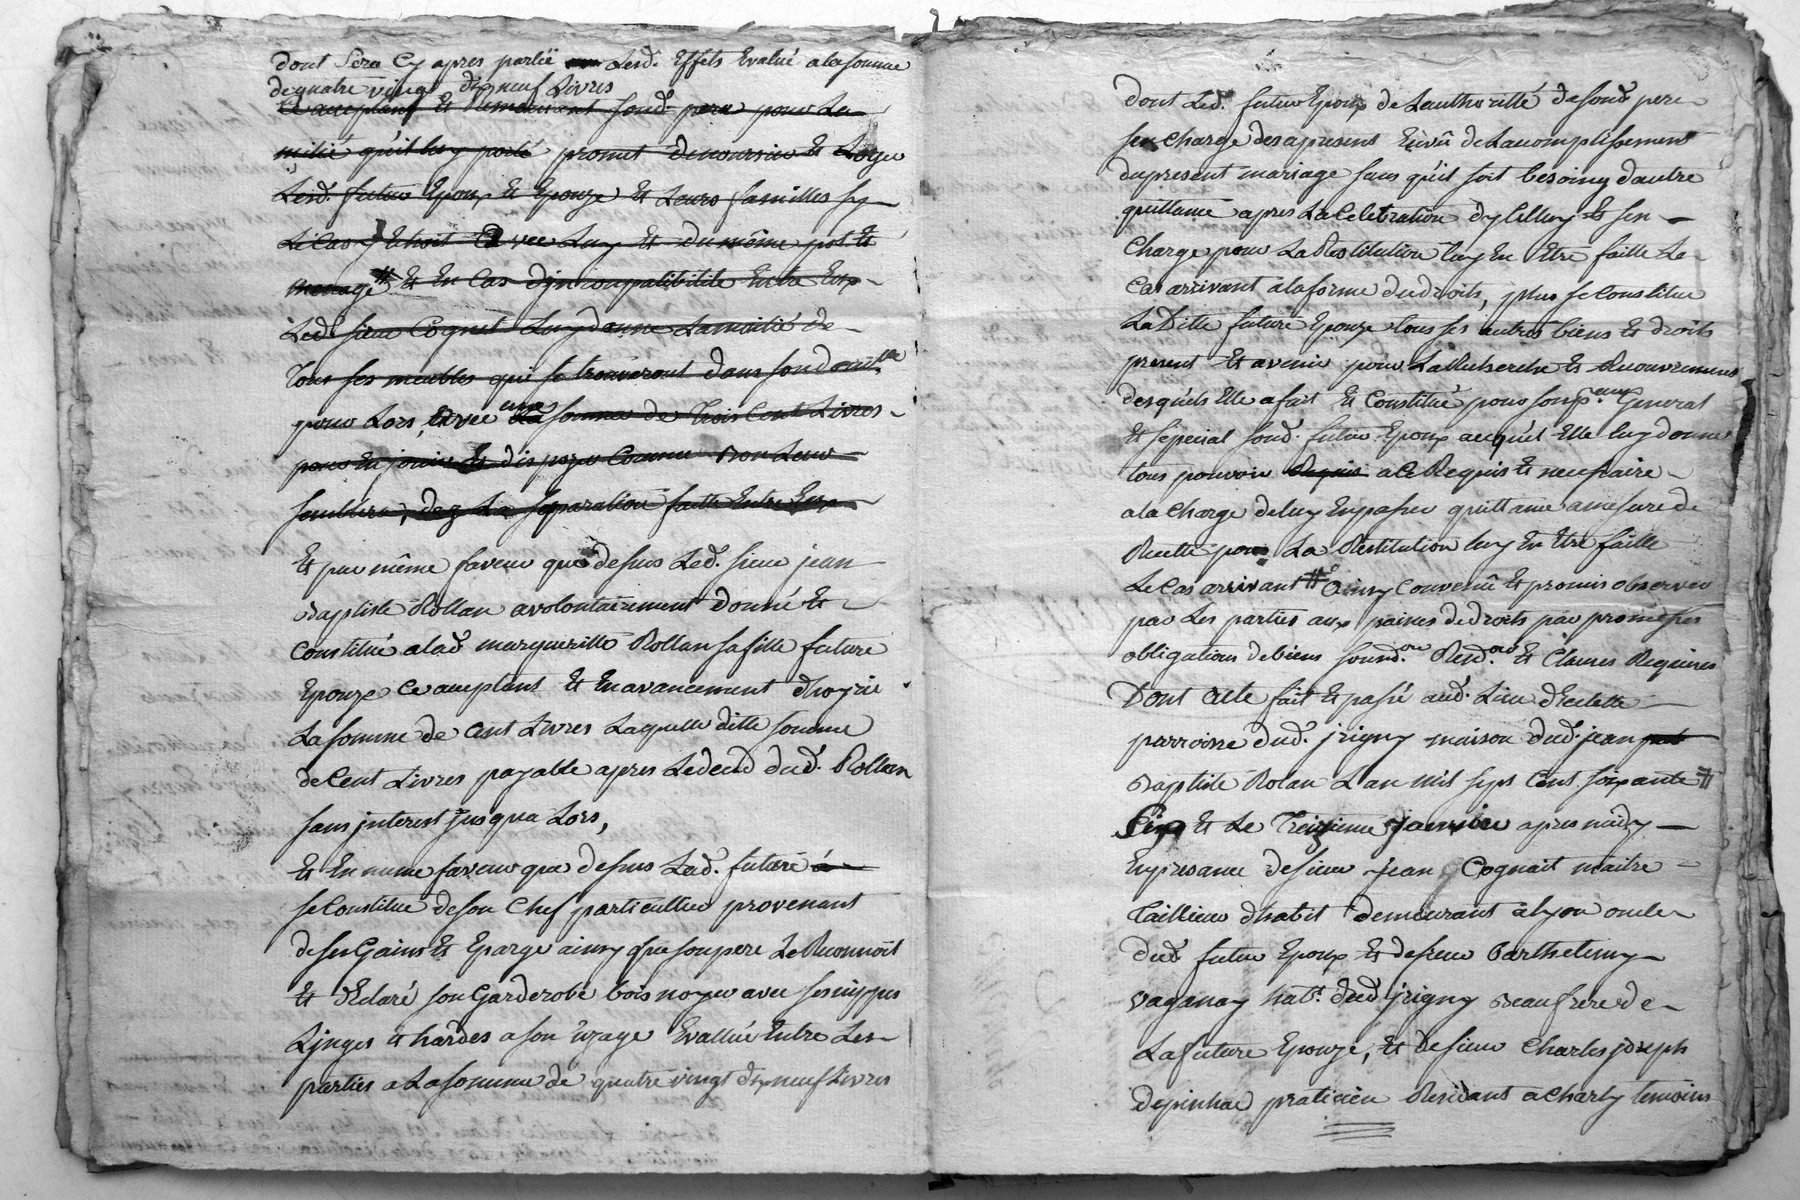 dont Sera Cy apres parlé Lesd. Effets Evalué a la somme
de quatre vingt dix neuf Livres
Ce acceptant Et Remerciant sond. pere pour La-
mitié qu'il luy porte promet de nourrir Et Loger
Lesd. futur Epoux Et Epouze Et Leurs familles sy
Le Cas y Echoit Avec Luy Et du même pot Et
menage # Et En Cas d'jncompatibilité Entre Eux-
Led. sieur Cognet Luy donne La moitié de-
tous ses meubles qui se trouveront dans son domicille
pour Lors, avec une somme de trois Cent Livres-
pour En jouir Et dispozer Comme bon Leur-
semblera, dez La separation faitte Entre Eux
Et par même faveur que dessus Led. sieur jean-
Baptiste Rollan a volontairement donné Et-
Constitué a lad. margueritte Rollan sa fille future
Epouze Ce acceptant Et En avancement d'hoyrie
La somme de Cent Livres Laquelle ditte somme
de Cent Livres payable apres Le deceds dud. Rollan
sans jnterest jusqua Lors,
Et En meme faveur que dessus Lad. future
se Constitue de son Chef particullier provenant
de ses Gains Et Epargne ainsy que son pere Le Reconnoit
Et declaré son Garderobe bois noyer avec ses nippes
Ljnges Et hardes a son uzage Evallué Entre Les-
parties a La somme de quatre vingt dix neuf Livres
dont Led. futur Epoux de Lauthorité de sond. pere-
se charge des apresent En vû de Lacomplissement
du present mariage sans qu'il soit besoing dautre
quittance apres La Celebration d'ylelluy Et sen-
Charge pour La Restitution luy En Etre faitte Le-
Cas arrivant a la forme du droits, plus se Constitue
La ditte future Epouze tous ses autres biens Et droits
present Et avenir pour La Recherche Et Recouvrement
desquels Elle a fait Et Constitué pour son p.eur General
Et special sond. futur Epoux auquel Elle luy donne
tous pouvoir Requis a ce Requis Et necessaire-
a la Charge de luy En passer quittance a mesure de
Recette pour La Restitution luy En Etre faitte
Le Cas arrivant # Ainsy Convenû Et promis observer
par Les parties aux paines de droits par promesses
obligations de biens soumd.on Resd.on Et Clauses Requises
Dont acte fait Et passé aud. Lieu
parroisse dud. jrigny maison dud. jean
Baptiste Rolan Lan mil sept Cent soixante #
Cinq Et Le Treizieme janvier apres midy-
En presance de sieur Jean Cognait maitre-
Taillieur d'habit demeurant a lyon oncle-
dud. futur Epoux Et de sieur Barthelemy-
Vaganay habt. dud. jrigny Beaufrere de-
La future Epouze, Et de sieur Charles joseph
depinhac praticien Residant a Charly temoins